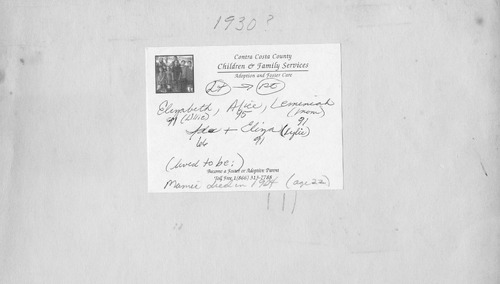 1930?
Contra Costa County
Children & Family Services
Adoption and Foster Care
Lt → Rt
Elizabeth, Alice, Lemeniah
91 (Ellie) 95 (mom) 91
Ida + Eliza (Lylie)
66 91
(lived to be:)
Become a Foster or Adoption Parent
Toll Free 1(866) 313-7788
Mamie died in 1924 (age 22)